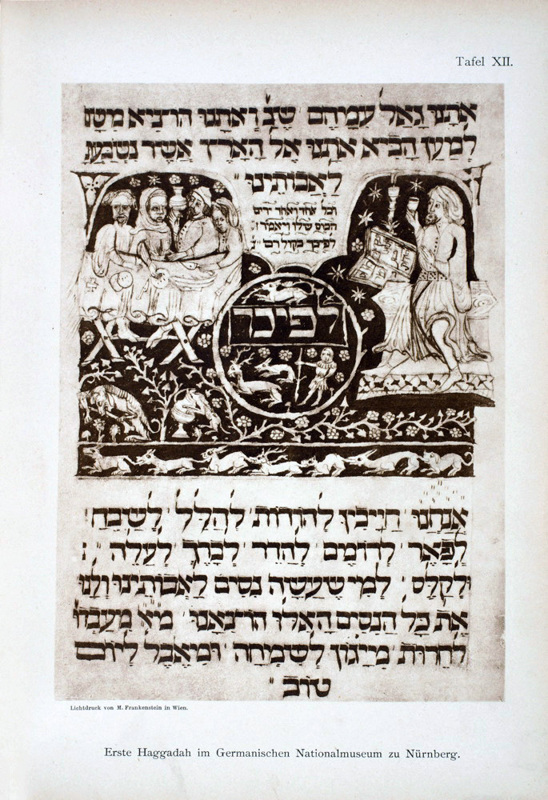 Tafel XII.
אתנו גאל עמיהם שנ' ואתנו הוציא משם
למען הביא אתנו אל הארץ אשר
לאבותינו
וכל אחד ואחד ירים
הכוס שלו ויאמרו
לפיכך בקול רם
לפיכך
אנחנו חייבין להודות להלל לשבח
לפאר לרומם להדר לברך לעלה
ולקלס למי שעשה נסים לאבותינו ולנו
את כל הנסים האילו הוציאנו
לחרות מייגון לשמחה ומאבל ליום
טוב
Lichtdruck von M. Frankenstein in Wien.
Erste Haggadah im Germanischen Nationalmuseum zu Nürnberg.